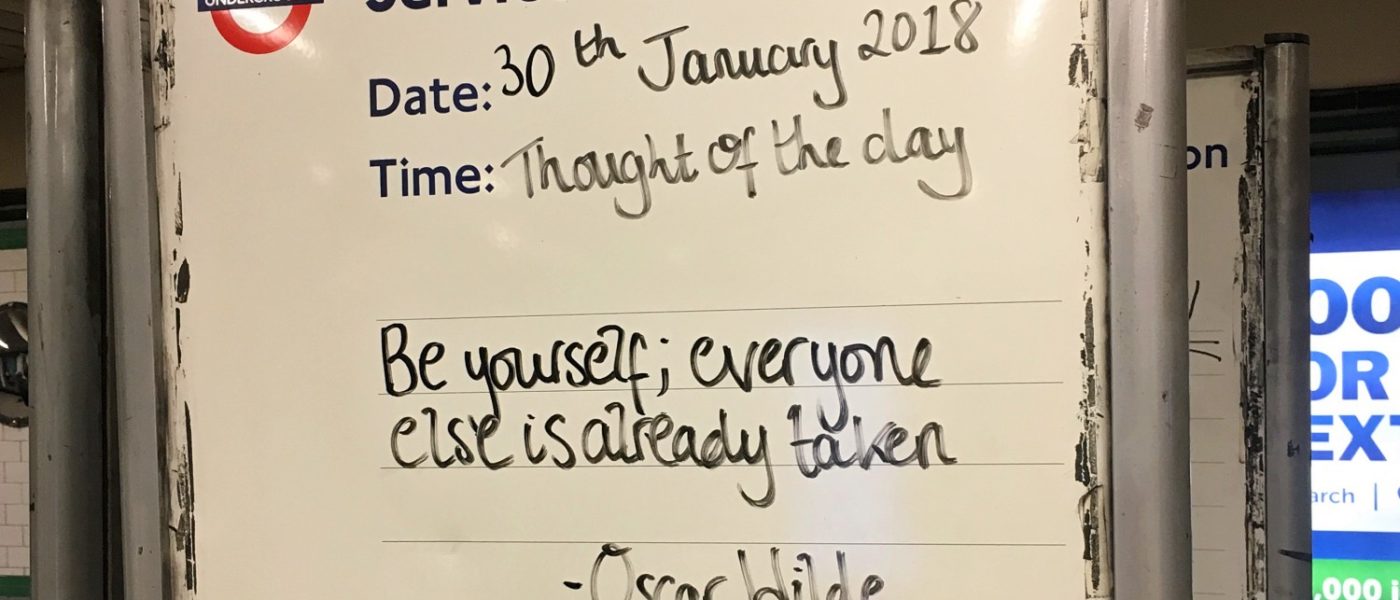 UNDERGROUND
Date: 30th January 2018
Time: Thought of the day
Be yourself; everyone
else is already taken
-Oscar Wilde
on
OO
OR
EXT
arch |
,000 i